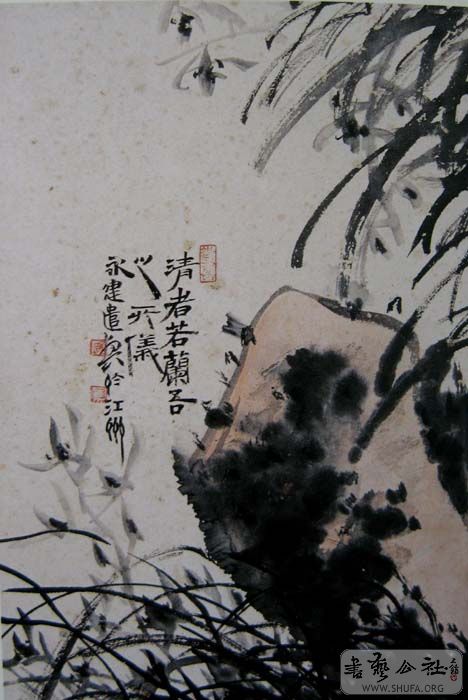 清者若蘭吾
心儀
永建遣興於江州
書藝公社
WWW.SHUFA.ORG